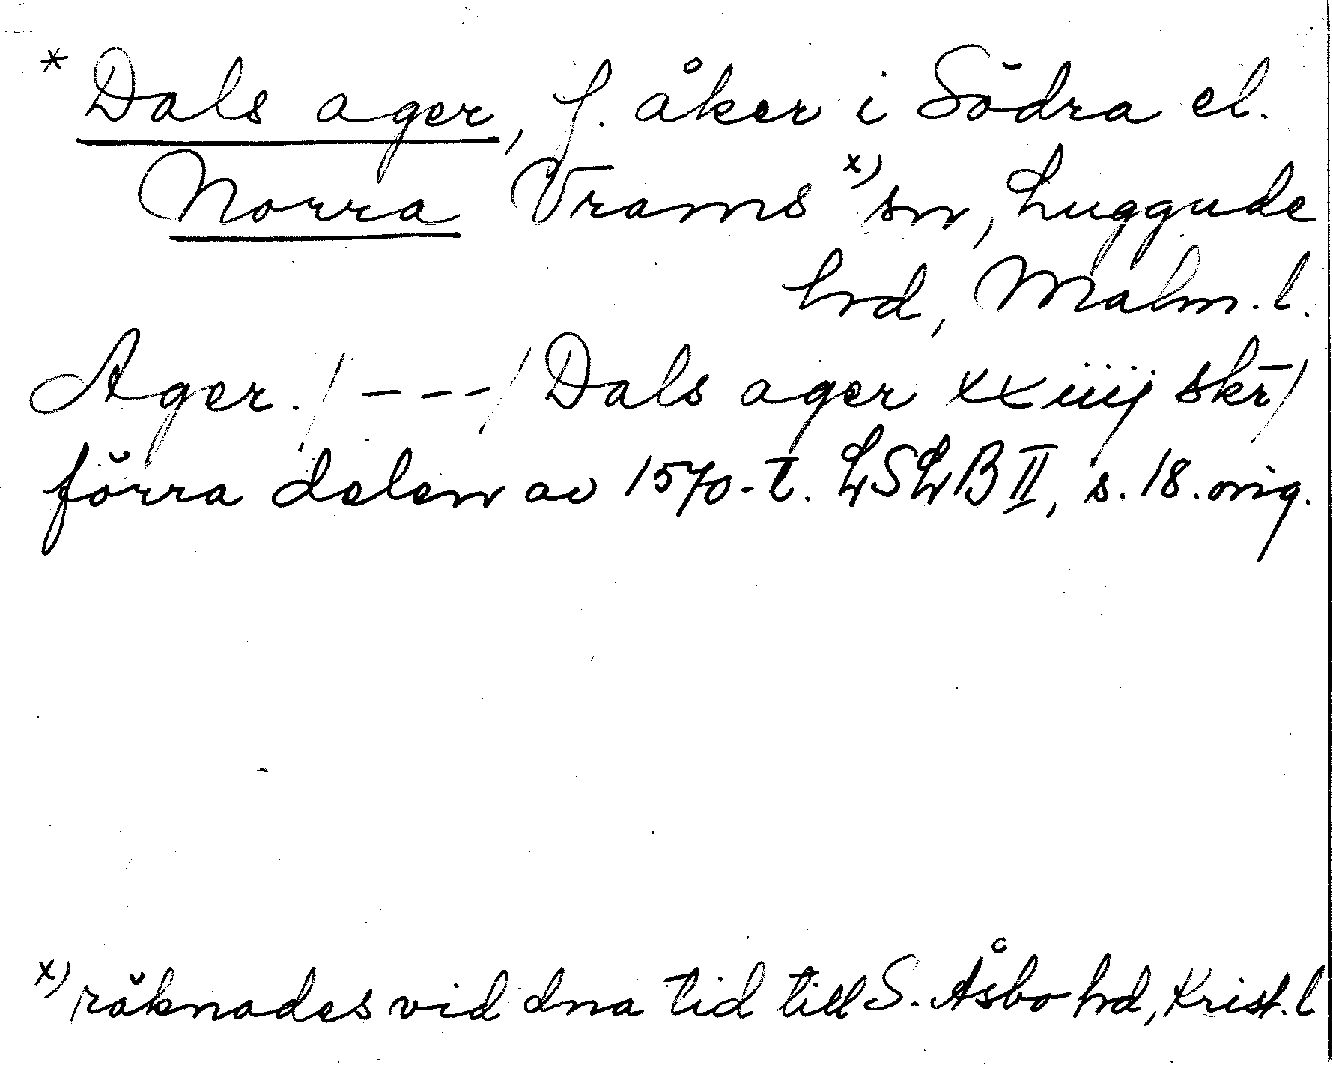 * Dals ager, f. åker i Södra el.
Norra Vrams x) sn, Luggude
hd, Malm. l.
Ager. /---/ Dals ager xxiiij skr/
förra delen av 1570-t. LSLB II, s. 18. orig.
x) räknades vid dna tid till S. Åsbo hd, Krist. l